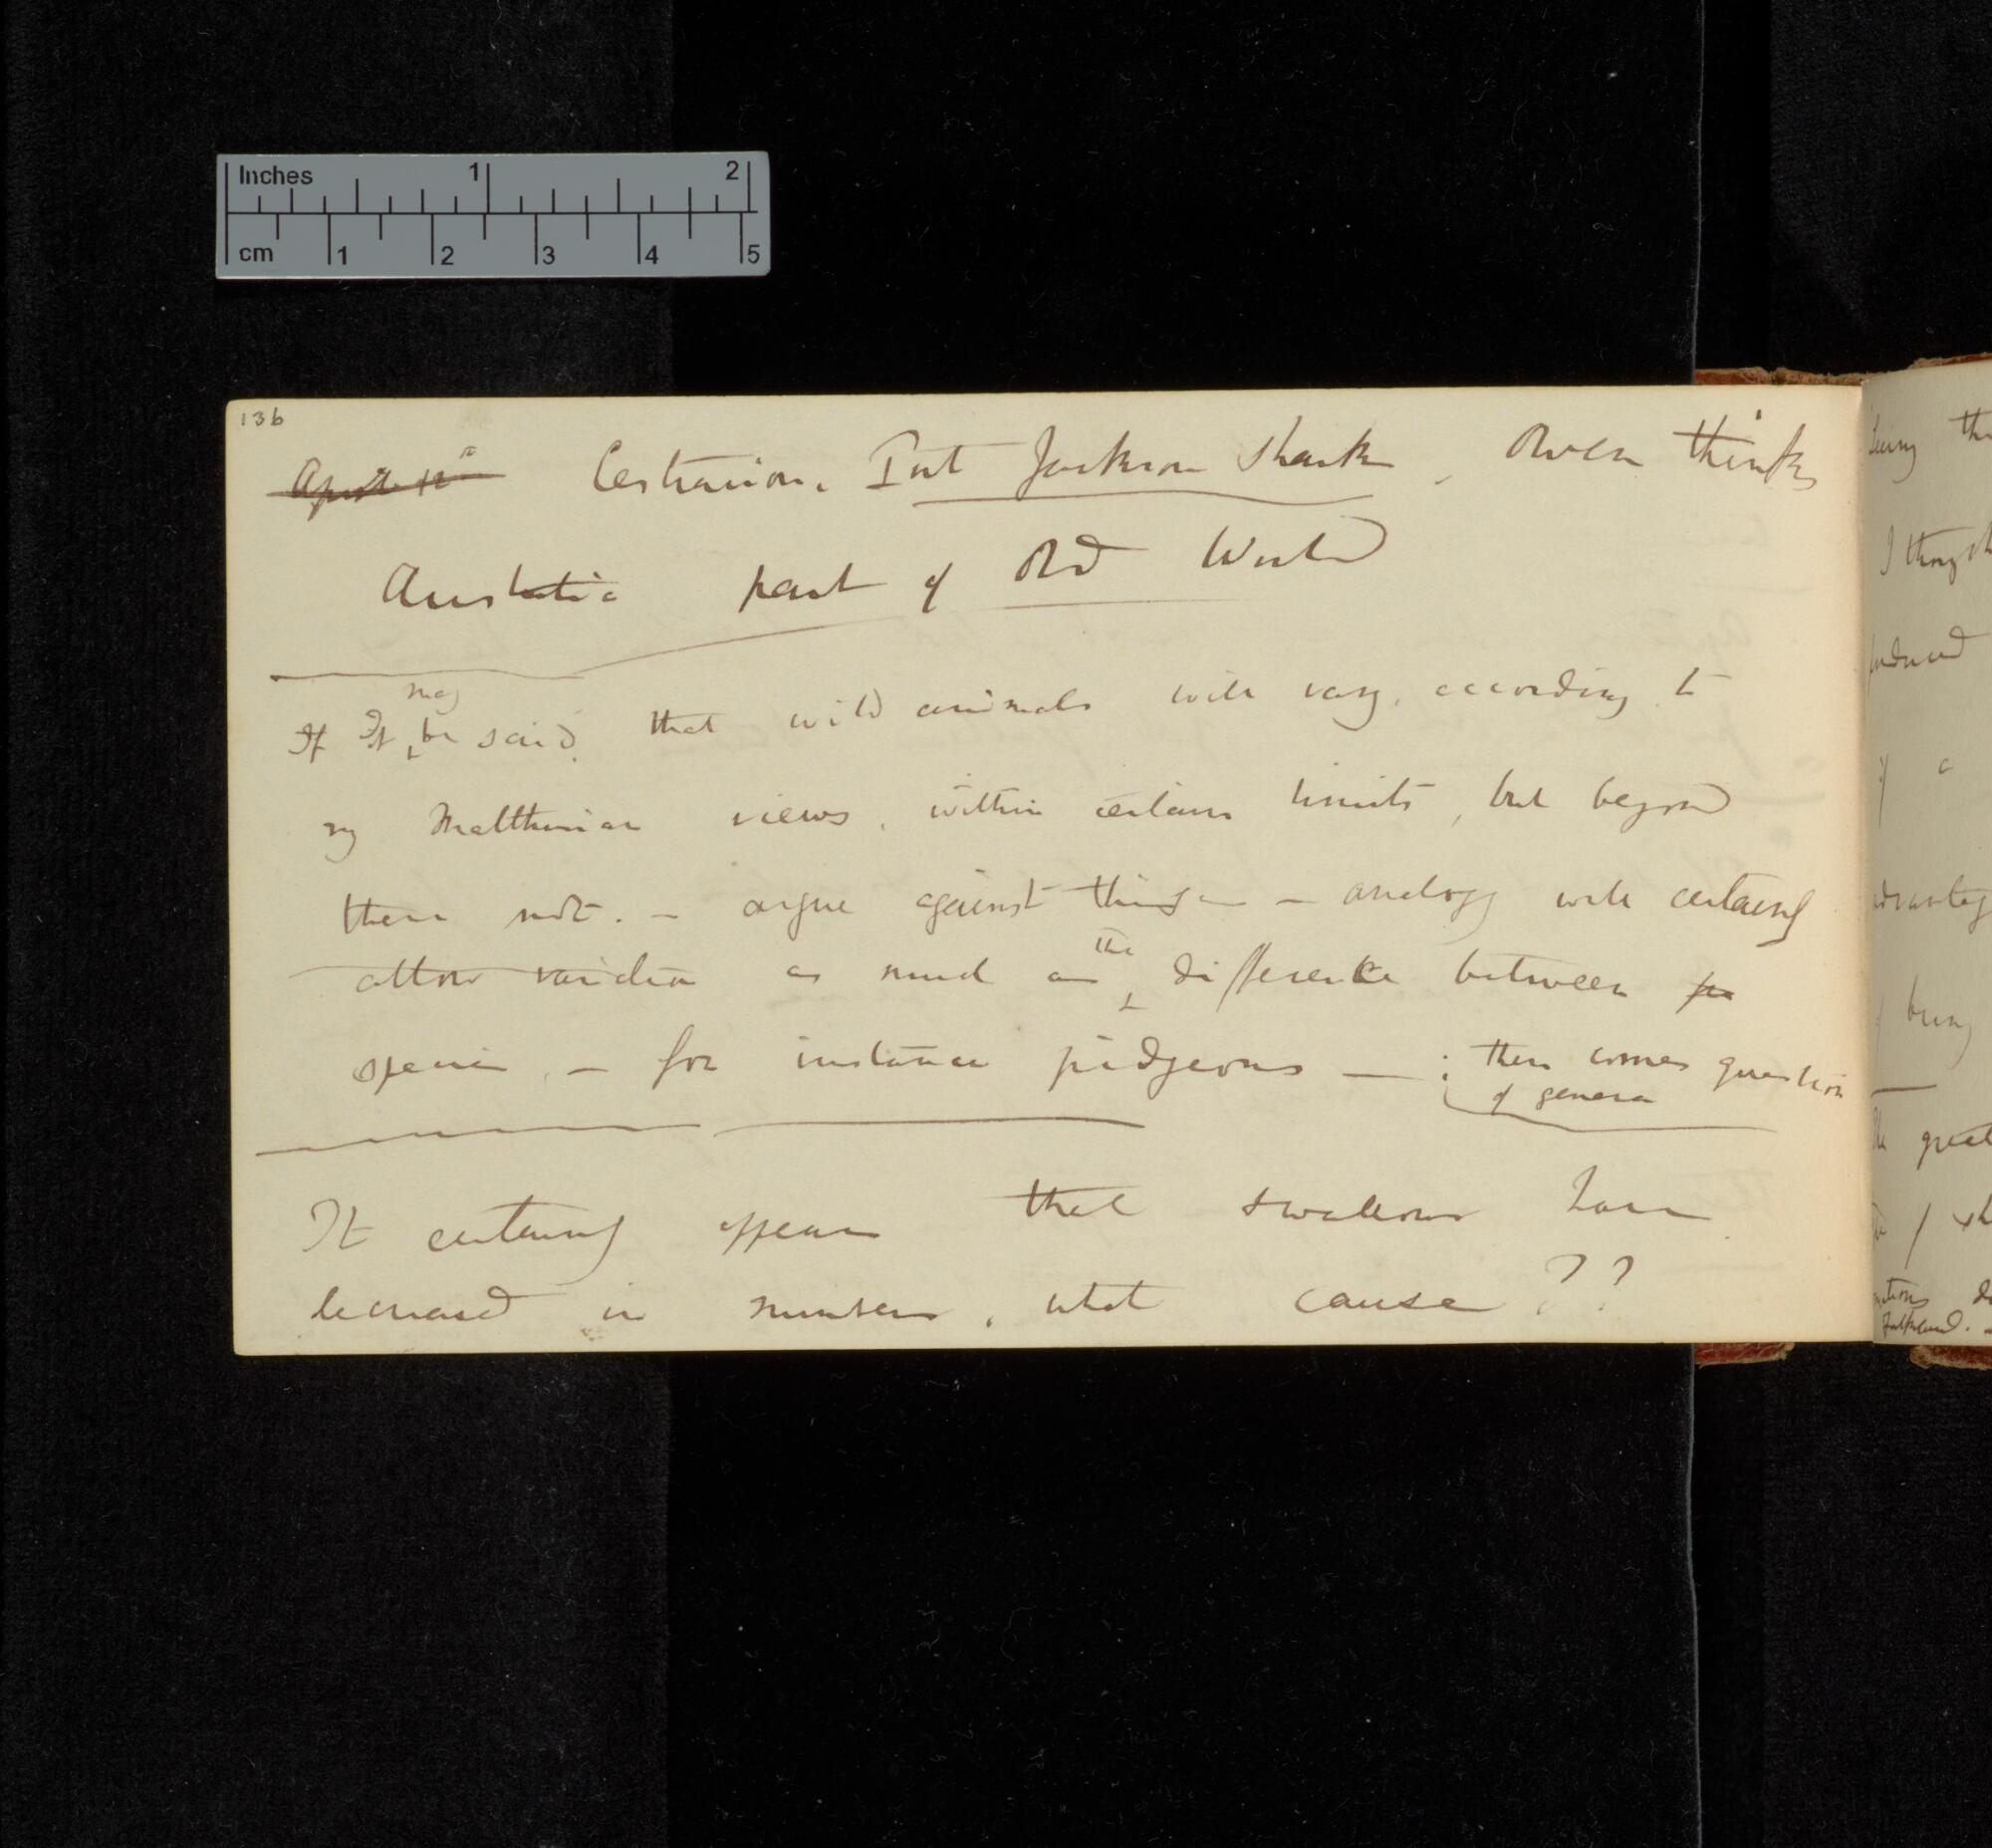 Inches 1 2
cm 1 2 3 4 5
136
April 12 Cestracion, Port Jackson Shark, Owen thinks
Australia part of Old World
may
If It be said that wild animals will vary, according to
my Malthusian views, within certain limits, but beyond
them not. — argue against this — analogy will certainly
allow variation as much as the difference between
species, — for instance pidgeons — : then comes question
of genera
It certainly appears that swallows have
decreased in numbers, what cause ??
being
I thought
produced
if a
advantage
being
great
Falkland. —